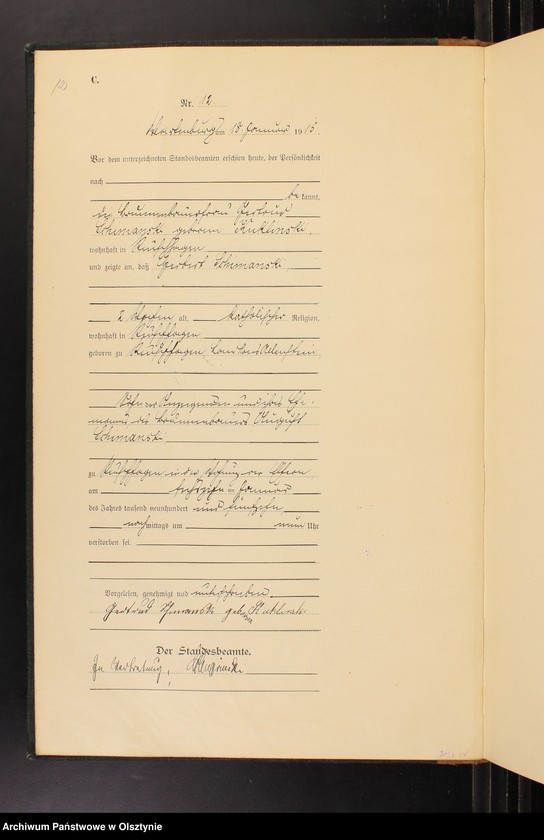 C.
Nr. 12.
Wartenburg am 18 Januar 1915.
Vor dem unterzeichneten Standesbeamten erschien heute, der Persönlichkeit
nach
be kannt,
die Brunnenbauerfrau Gertrud
Schimanski geborene Kuklinski,
wohnhaft in
und zeigte an, daß Herbert Schimanski,
2 Wochen alt, katholischer Religion,
wohnhaft in
geboren zu Landkreis Allenstein
Sohn der Anzeigenden und ihres Ehe-
mannes des Brunnenbauers August
Schimanski
zu in der Wohnung der Eltern,
am sechszehn ten Januar
des Jahres tausend neunhundert und fünfzehn
nachmittags um neun Uhr
verstorben sei.
Vorgelesen, genehmigt und unterschrieben
Gertrud geborene
Der Standesbeamte.
In Vertretung,
Archiwum Państwowe w Olsztynie